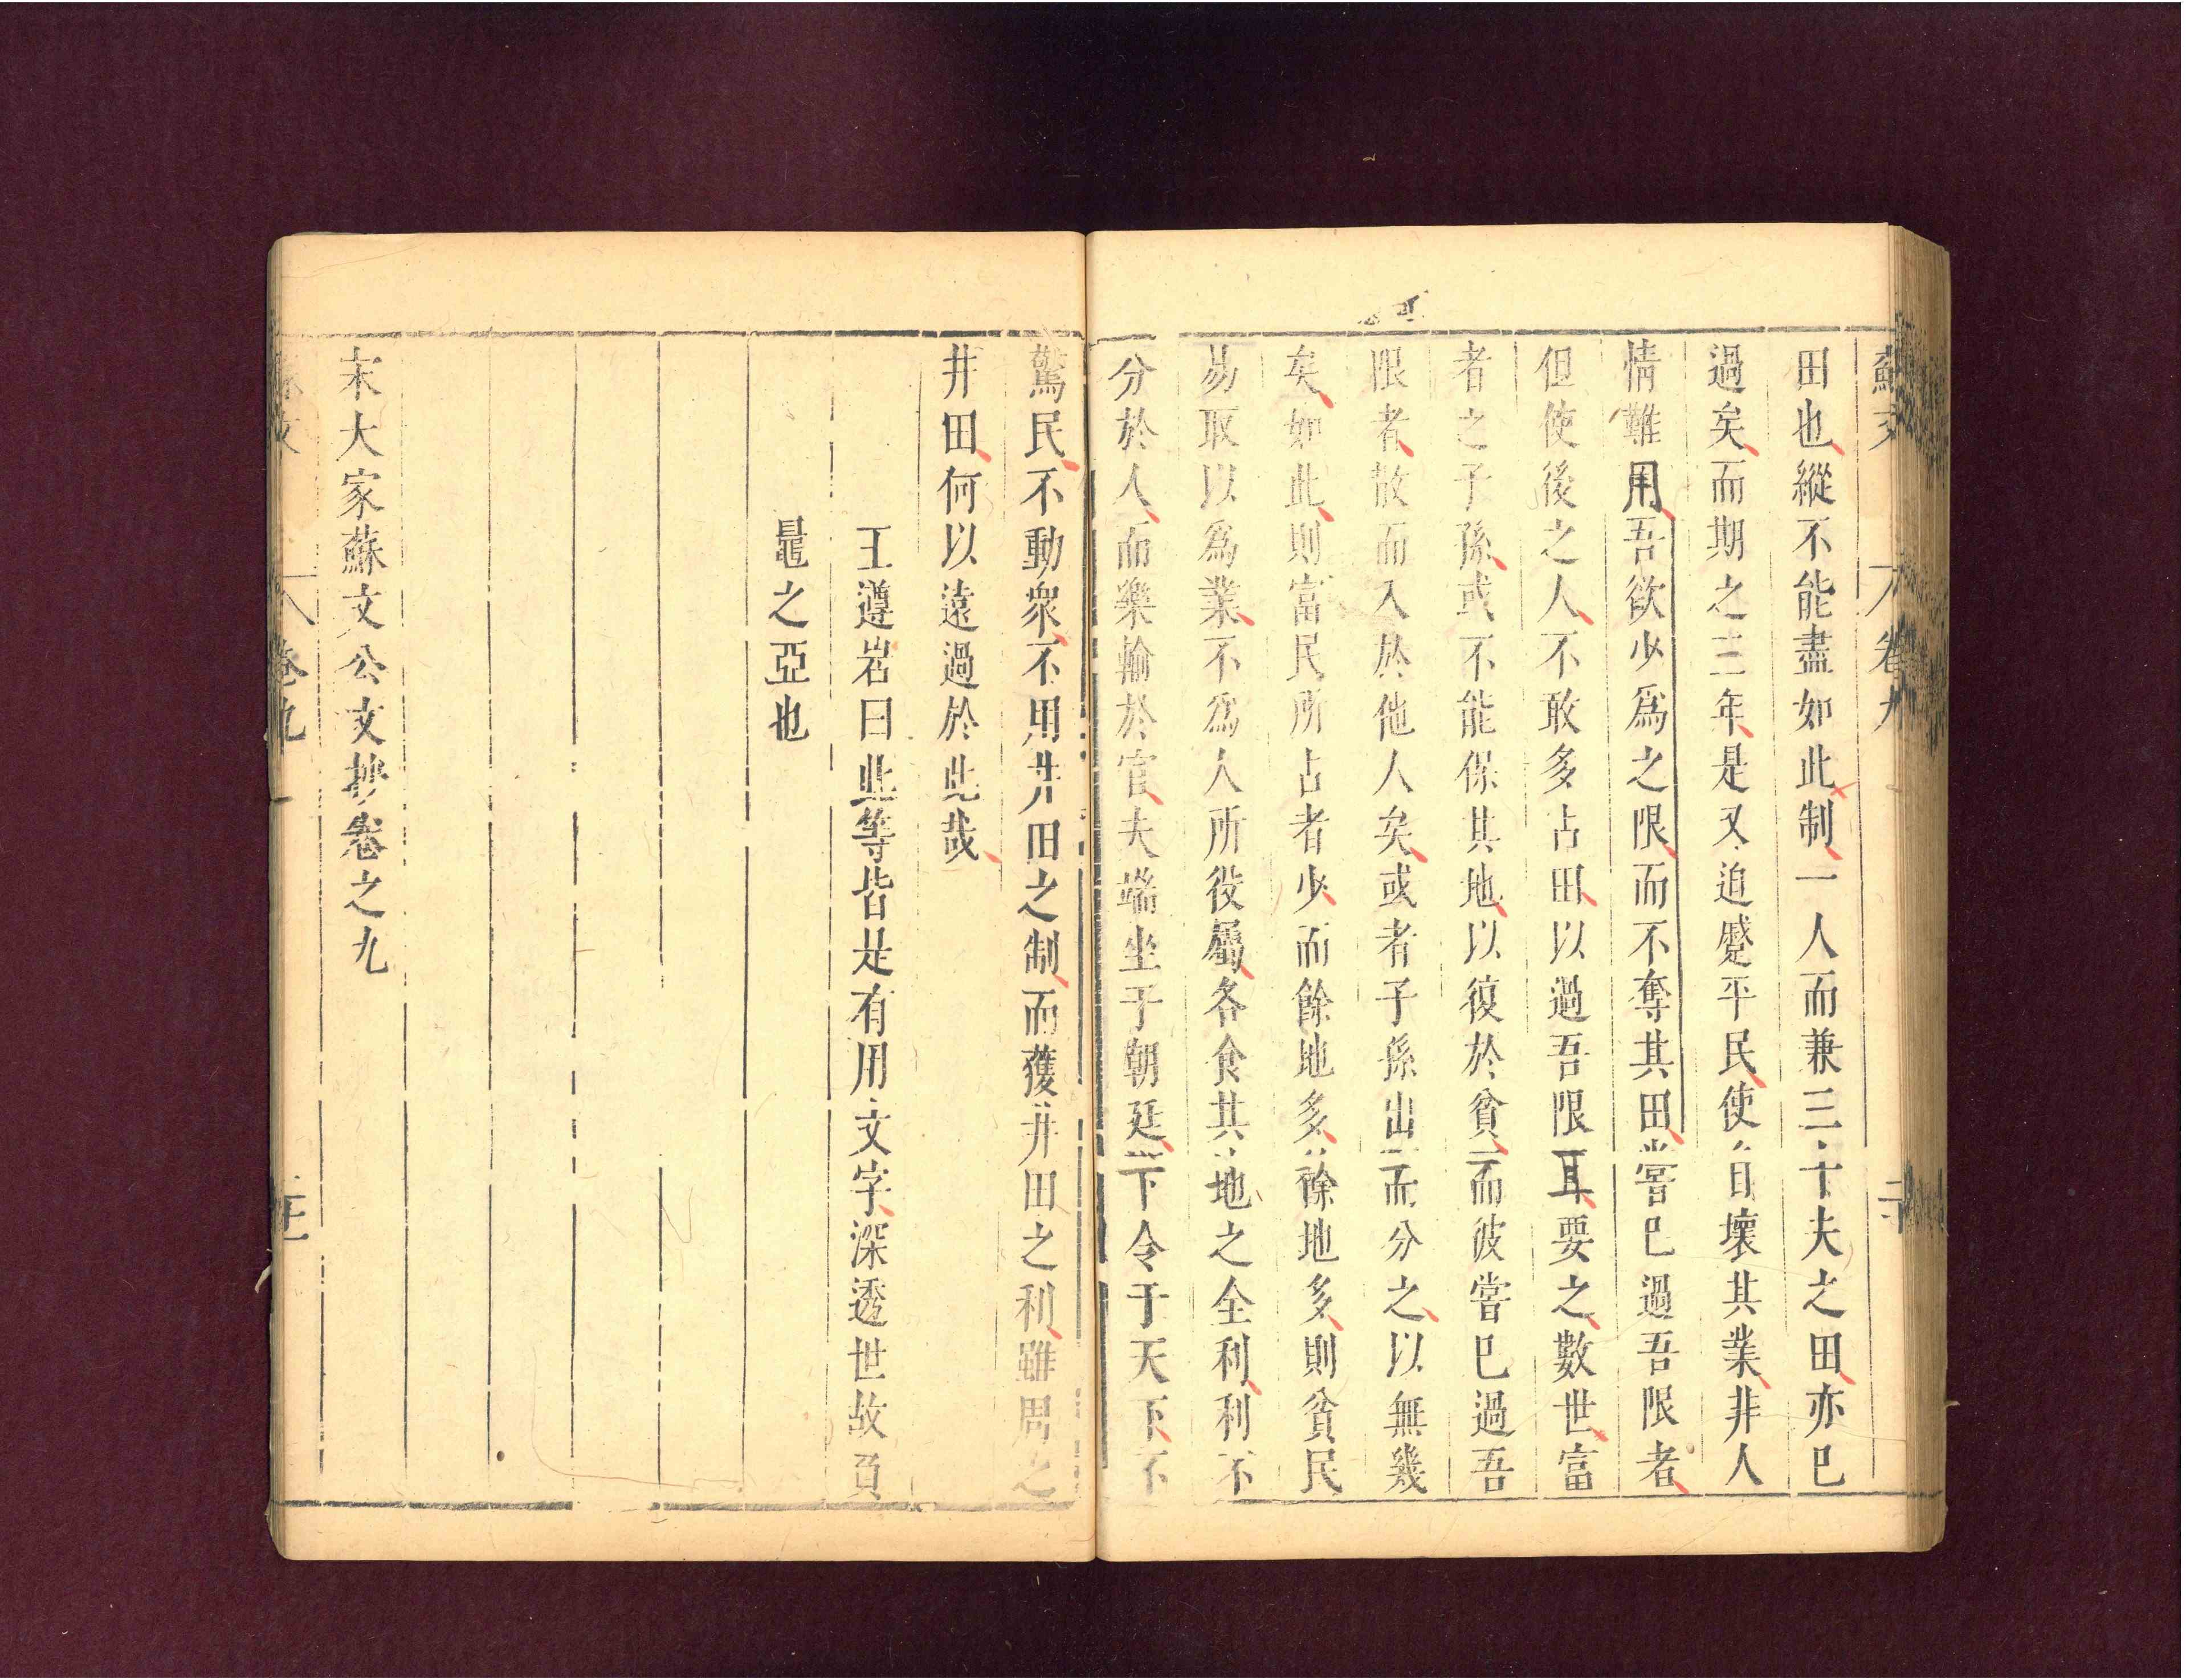 蘇文 卷九 二十
田也縱不能盡如此制一人而兼三十夫之田亦已
過矣而期之三年是又迫蹙平民使自壞其業非人
情難用吾欲少爲之限而不奪其田嘗已過吾限者
但使後之人不敢多占田以過吾限耳要之數世富
者之子孫或不能保其地以復於貧而彼嘗已過吾
限者散而入於他人矣或者子孫出而分之以無幾
矣如此則富民所占者少而餘地多餘地多則貧民
易取以爲業不爲人所役屬各食其地之全利利不
分於人而樂輸於官夫端坐于朝廷下令于天下不
驚民不動衆不用井田之制而獲井田之利雖周之
井田何以遠過於此哉
王遵岩曰此等皆是有用文字深透世故賈
鼂之亞也
宋大家蘇文公文抄卷之九
文 卷九